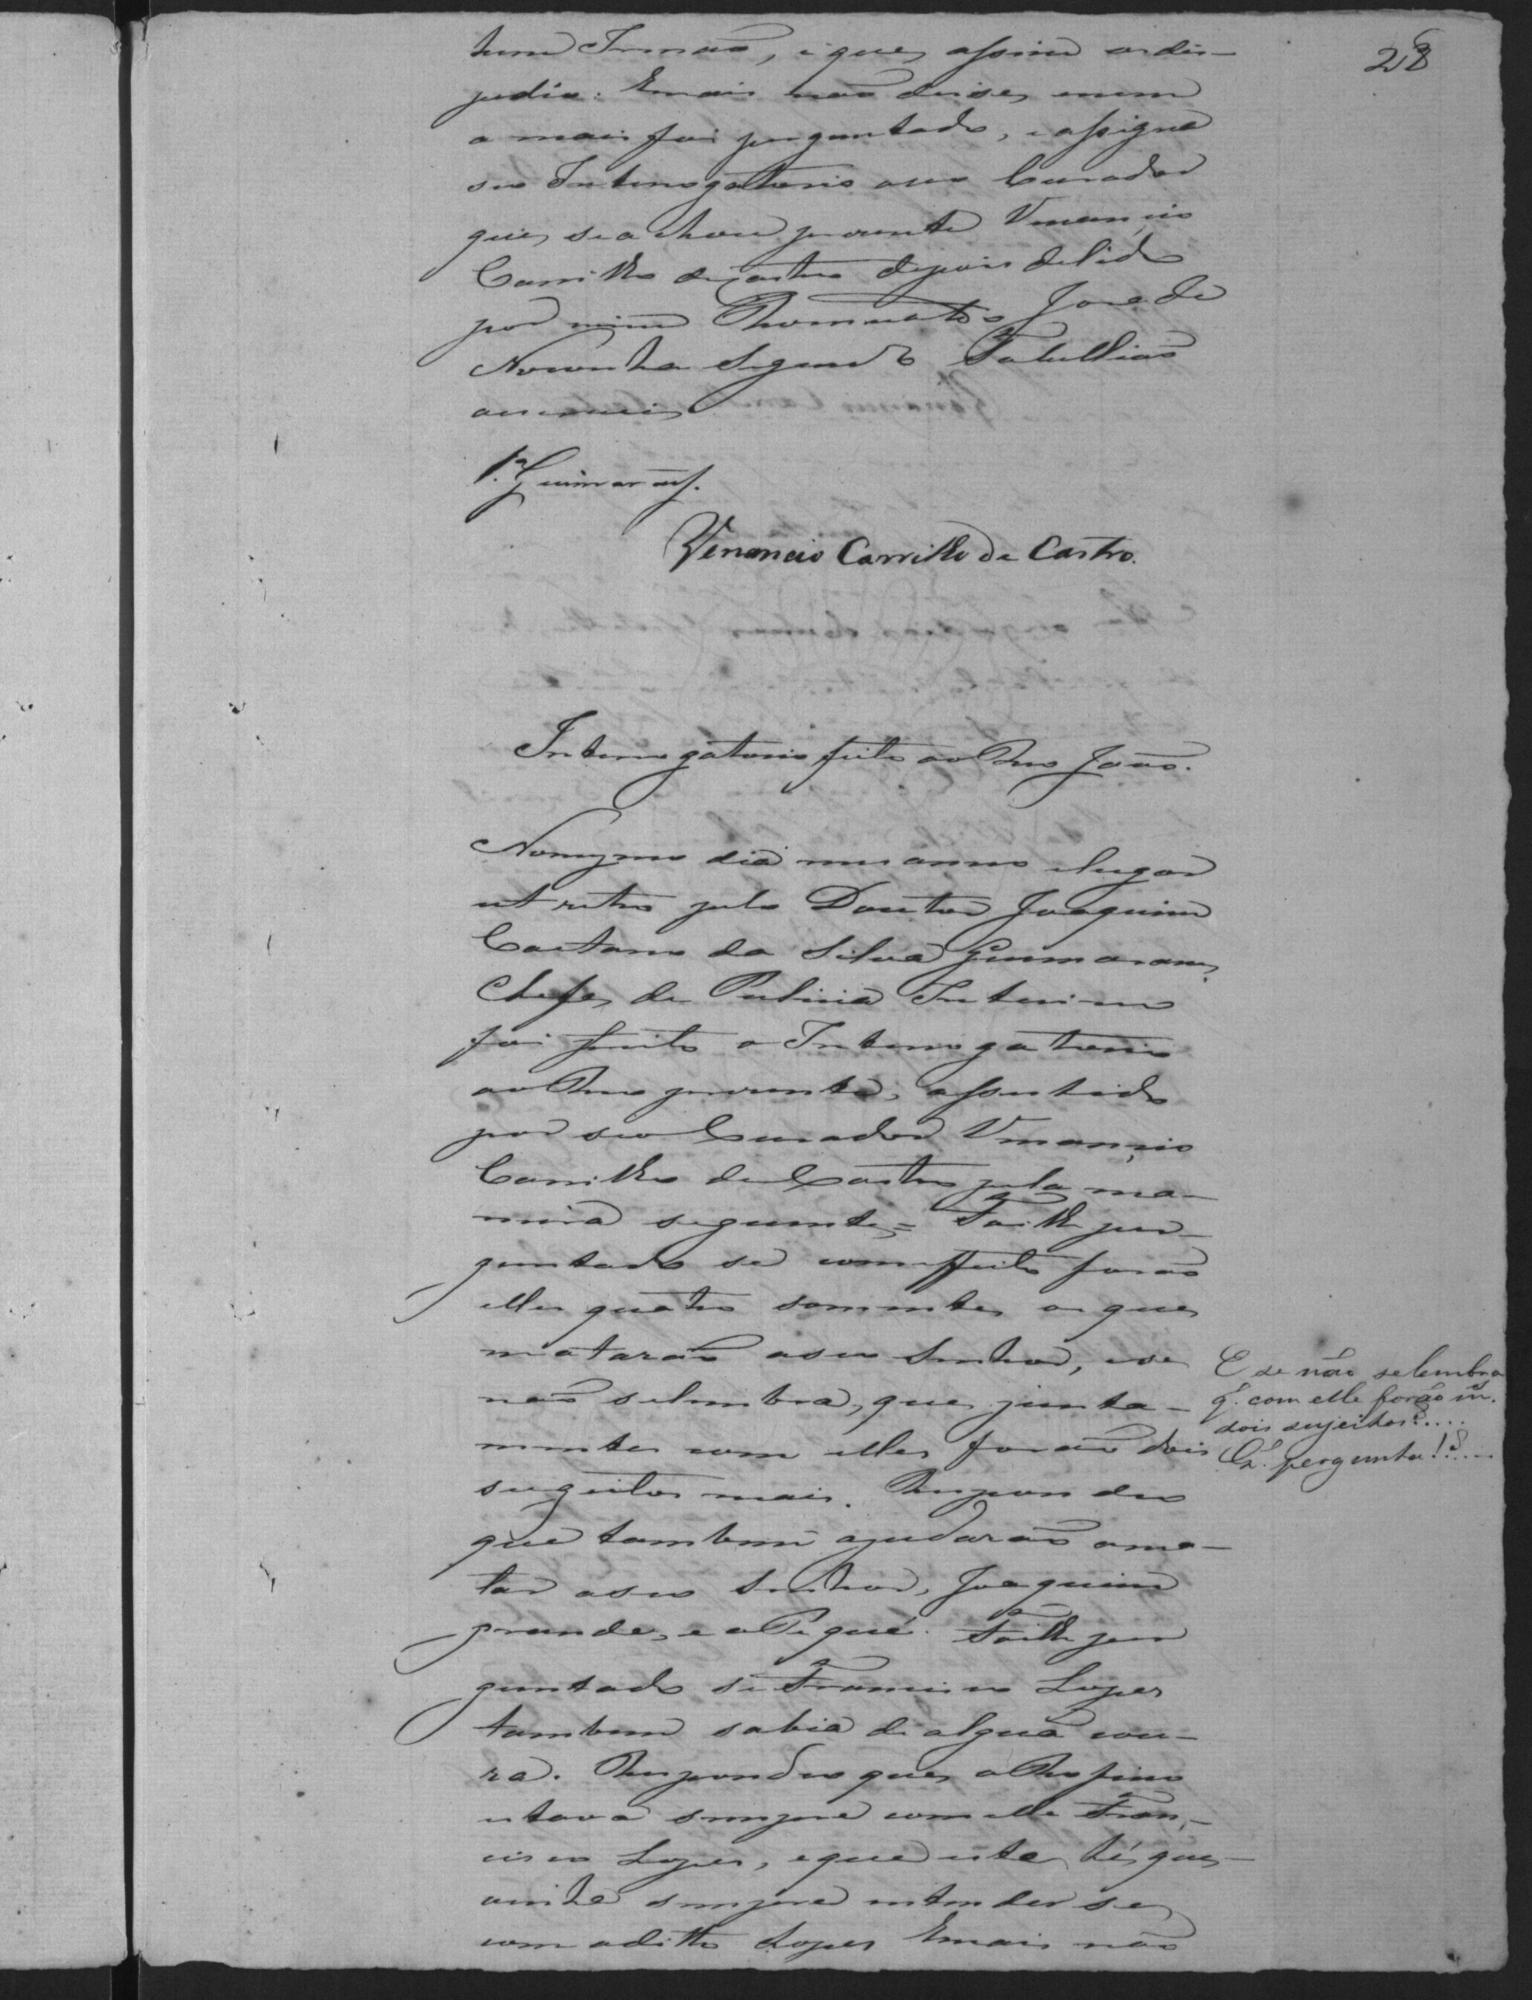 28
hum Irmão, e que assim os dis-
pedio. E mais não disse, e nem
a mais foi perguntado, e assigna
seo Interrogatorio o seo Curador
que se achou presente Venancio
Carrilho de Castro depois de lido
por mim Romualdo José de
Noronha Segundo Tabellião
escrevi
P. Guimarães.
Venancio Carrilho de Castro.
Interrogatorio feito ao Reo João.
No mesmo dia mes anno e lugar
ut retro pelo Doutor Joaquim
Caetano da Silva Guimaraens,
Chefe de Policia Interino
foi feito o Interrogatorio
ao Reo presente, assestido
por seo Curador Venancio
Carrilho de Castro pela ma-
neira seguinte = Foi lhe per-
guntado se com effeito forão
elles quatro somente os que
matarão a seo Senhor, e se
não se lembra, que junta-
mente com elles forão dois
sugeitos mais. Respondeo
que tambem ajudarão a ma-
tar a seo Senhor, Joaquim
grande, e o Pequé. Foi lhe per
guntado se Francisco Lopes
tambem sabia de algua cou-
za. Respondeo que o Rofino
estava sempre com elle Fran-
cisco Lopes, e que este he que
vinha sempre entender se
com o ditto Lopes E mais não
E se não se lembra
q. com elle forão m.
dois sujeitos?....
Q. pergunta!?....